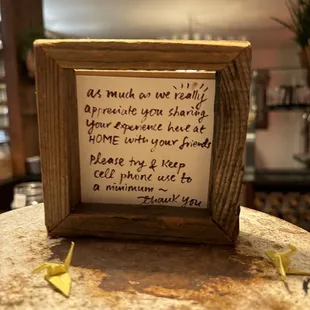 as much as we really
appreciate you sharing
your experience here at
HOME with your friends
Please try & keep
cell phone use to
a minimum ~
Thank You